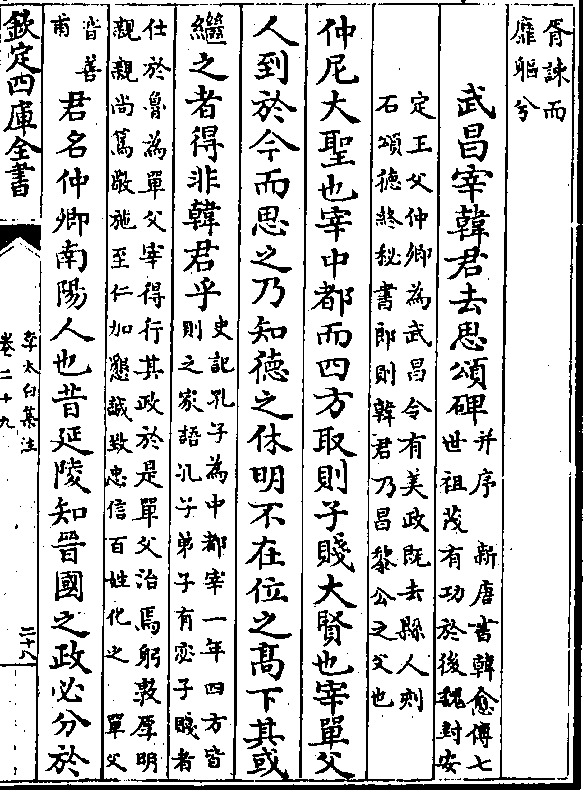 胥諫而
靡軀兮
武昌宰韓君去思頌碑
并序　新唐書韓愈傳七
世祖茂有功於後魏封安
定王父仲卿為武昌令有美政既去縣人刻
石頌德終秘書郎則韓君乃昌黎公之父也
仲尼大聖也宰中都而四方取則子賤大賢也宰單父
人到於今而思之乃知德之休明不在位之髙下其或
繼之者得非韓君乎
史記孔子為中都宰一年四方皆
則之家語孔子弟子有宓子賤者
仕於魯為單父宰得行其政於是單父治焉躬敦厚明
親親尚篤敬施至仁加懇誠致忠信百姓化之　單父
音善
甫
君名仲卿南陽人也昔延陵知晉國之政必分於
欽定四庫全書
李太白集注
卷二十九
二十八